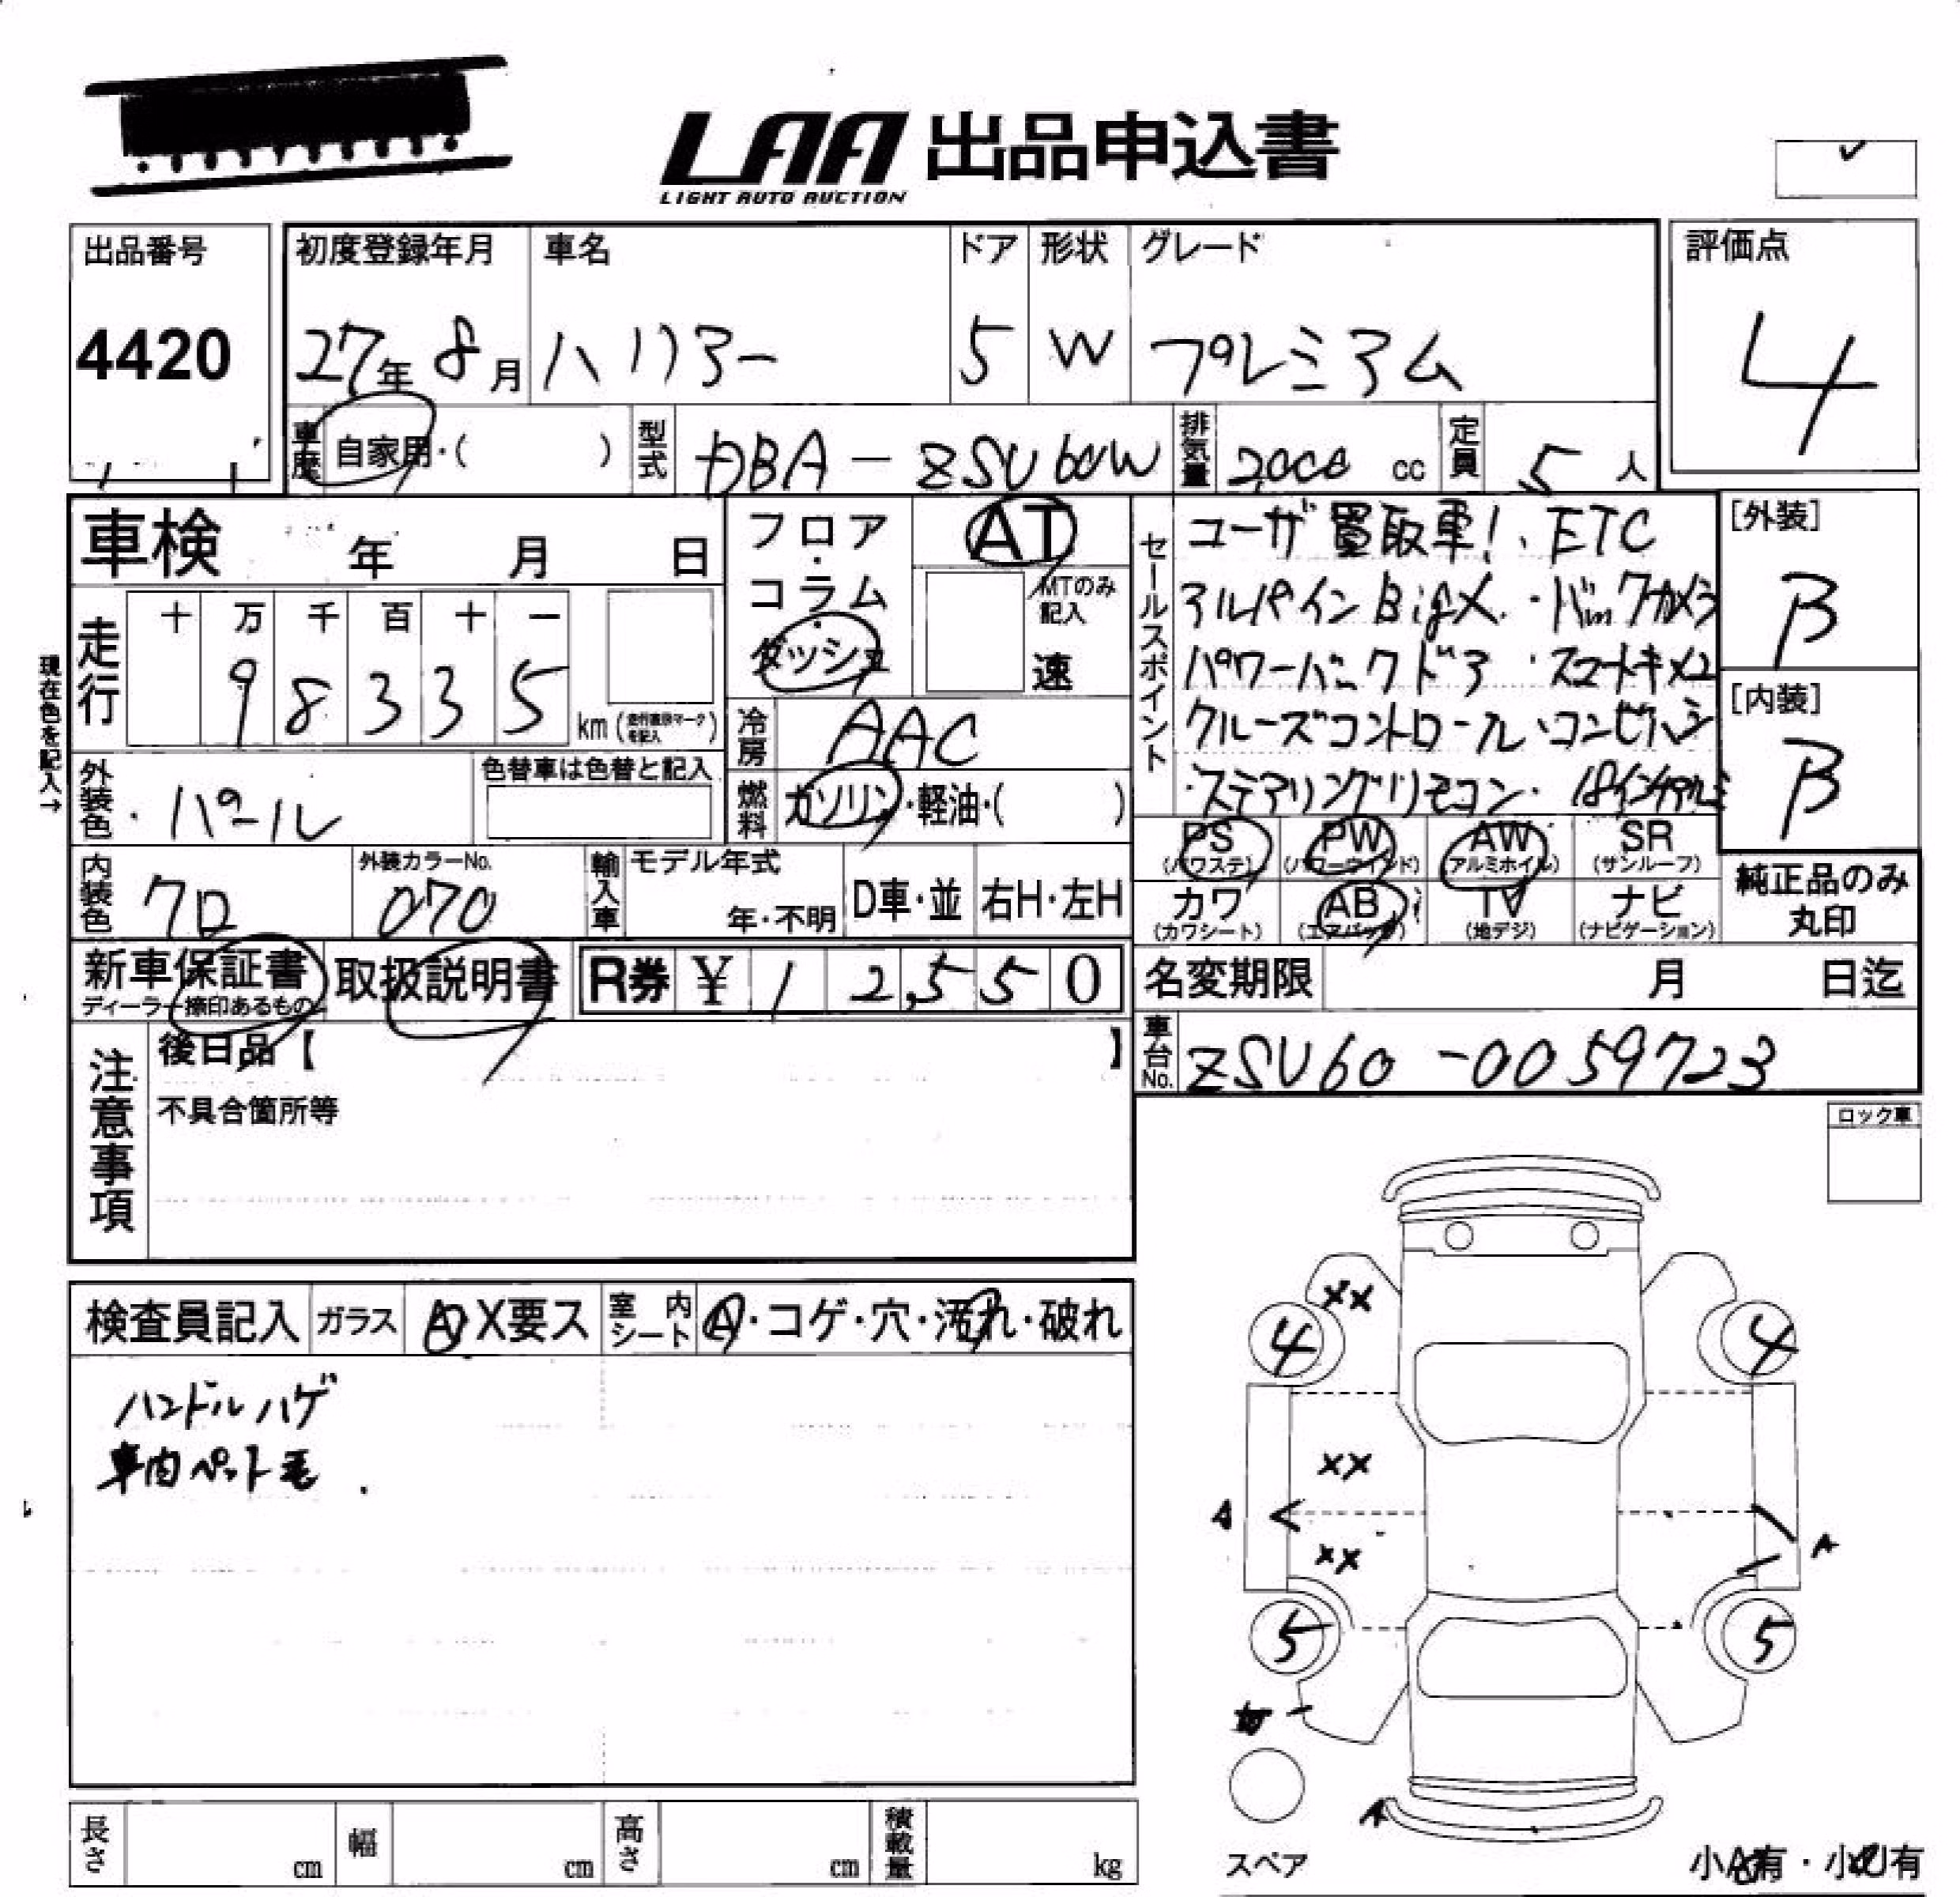 LAA 出品申込書
LIGHT AUTO AUCTION
出品番号
4420
初度登録年月
27年 8月
車名
ハリアー
ドア
5
形状
W
グレード
プレミアム
評価点
4
車歴 自家用・( )
型式 DBA-ZSU60W
排気量 2,000 cc
定員 5 人
車検 年 月 日
フロア・コラム・ダッシュ
AT
MTのみ記入
速
セールスポイント
ユーザ買取車!、ETC
アルパインBigX・バックカメラ
パワーバックドア・スマートキー×2
クルーズコントロール・コンビハン
・ステアリングリモコン・18インチアルミ
[外装]
B
[内装]
B
現在色を記入→
走行
十 万 千 百 十 一
9 8 3 3 5
km
冷房 AAC
外装色・パール
色替車は色替と記入
燃料 ガソリン・軽油・( )
PS (パワステ)
PW (パワーウィンド)
AW (アルミホイル)
SR (サンルーフ)
カワ (カワシート)
AB (エアバッグ)
TV (地デジ)
ナビ (ナビゲーション)
純正品のみ
丸印
内装色 クロ
外装カラーNo.
070
輸入車
モデル年式
年・不明
D車・並
右H・左H
新車保証書
ディーラー捺印あるもの
取扱説明書
R券 ¥ 1 2,5 5 0
名変期限 月 日迄
車台No. ZSU60-0059723
注意事項
後日品【 】
不具合箇所等
ロック車
検査員記入
ガラス A X要ス
室内シート A・コゲ・穴・汚れ・破れ
ハンドルハゲ
車内ペット毛
XX
4
4
XX
A
A
XX
5
5
A
スペア
小A有・小U有
長さ cm
幅 cm
高さ cm
積載量 kg